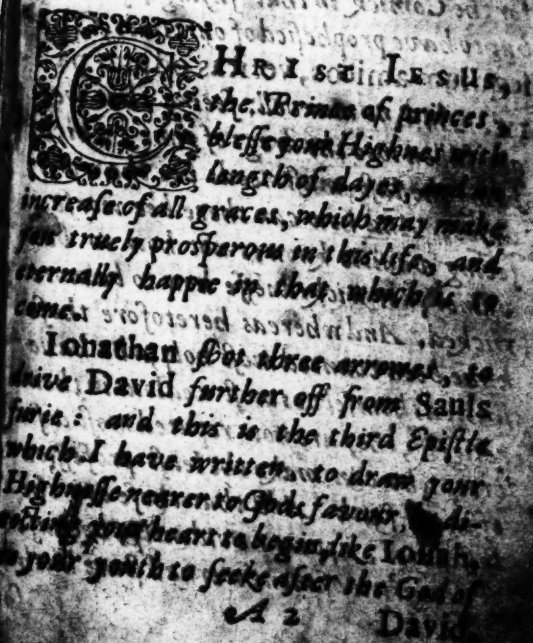 CHRIST IESUS,
the Prince of princes
blesse your Highnes with
length of dayes, and an
increase of all graces, which may make
you truely prosperous in this life, and
eternally happie in that which is to
come.
Ionathan shot three arrowes, to
drive David further off from Sauls
furie: and this is the third Epistle
which I have written to draw your
Highnesse nearer to Gods favour, di-
recting your heart to begin, like Iosiah,
in your youth to seeke after the God of
A 2 David